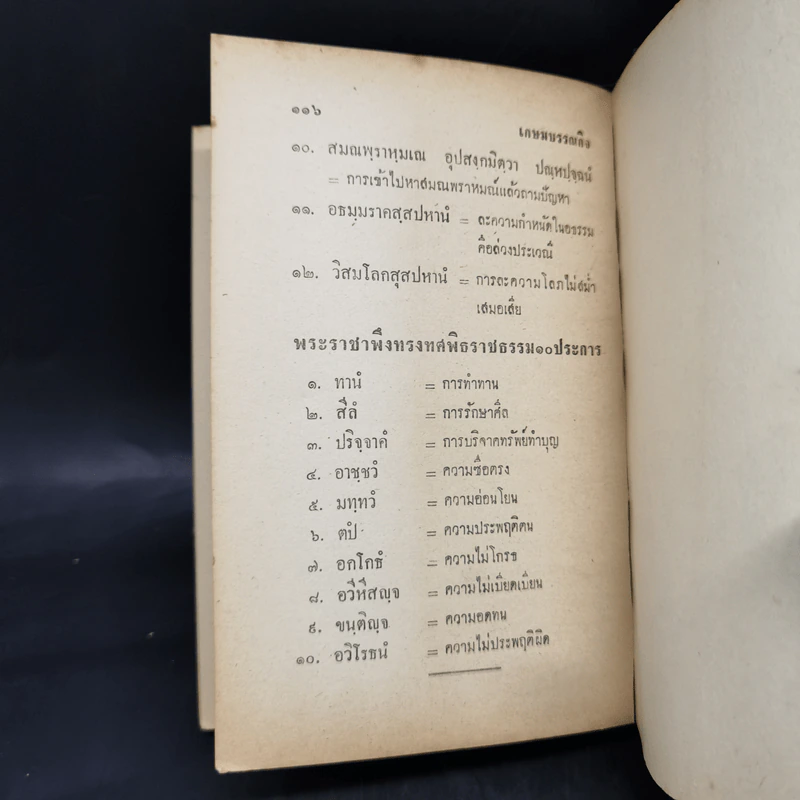 ๑๑๖
เกษมบรรณกิจ
๑๐. สมณพฺราหฺมเณ อุปสงฺกมิตฺวา ปณฺหปุจฺฉนํ
= การเข้าไปหาสมณพราหมณ์แล้วถามปัญหา
๑๑. อธมฺมราคสฺสปหานํ = ละความกำหนัดในอธรรม
คือล่วงประเวณี
๑๒. วิสมโลภสฺสปหานํ = การละความโลภไม่สม่ำ
เสมอเสีย
พระราชาพึงทรงทศพิธราชธรรม๑๐ประการ
๑. ทานํ = การทำทาน
๒. สีลํ = การรักษาศีล
๓. ปริจฺจาคํ = การบริจาคทรัพย์ทำบุญ
๔. อาชฺชวํ = ความซื่อตรง
๕. มทฺทวํ = ความอ่อนโยน
๖. ตปํ = ความประพฤติตน
๗. อกฺโกธํ = ความไม่โกรธ
๘. อวิหึสญฺจ = ความไม่เบียดเบียน
๙. ขนฺติญฺจ = ความอดทน
๑๐. อวิโรธนํ = ความไม่ประพฤติผิด